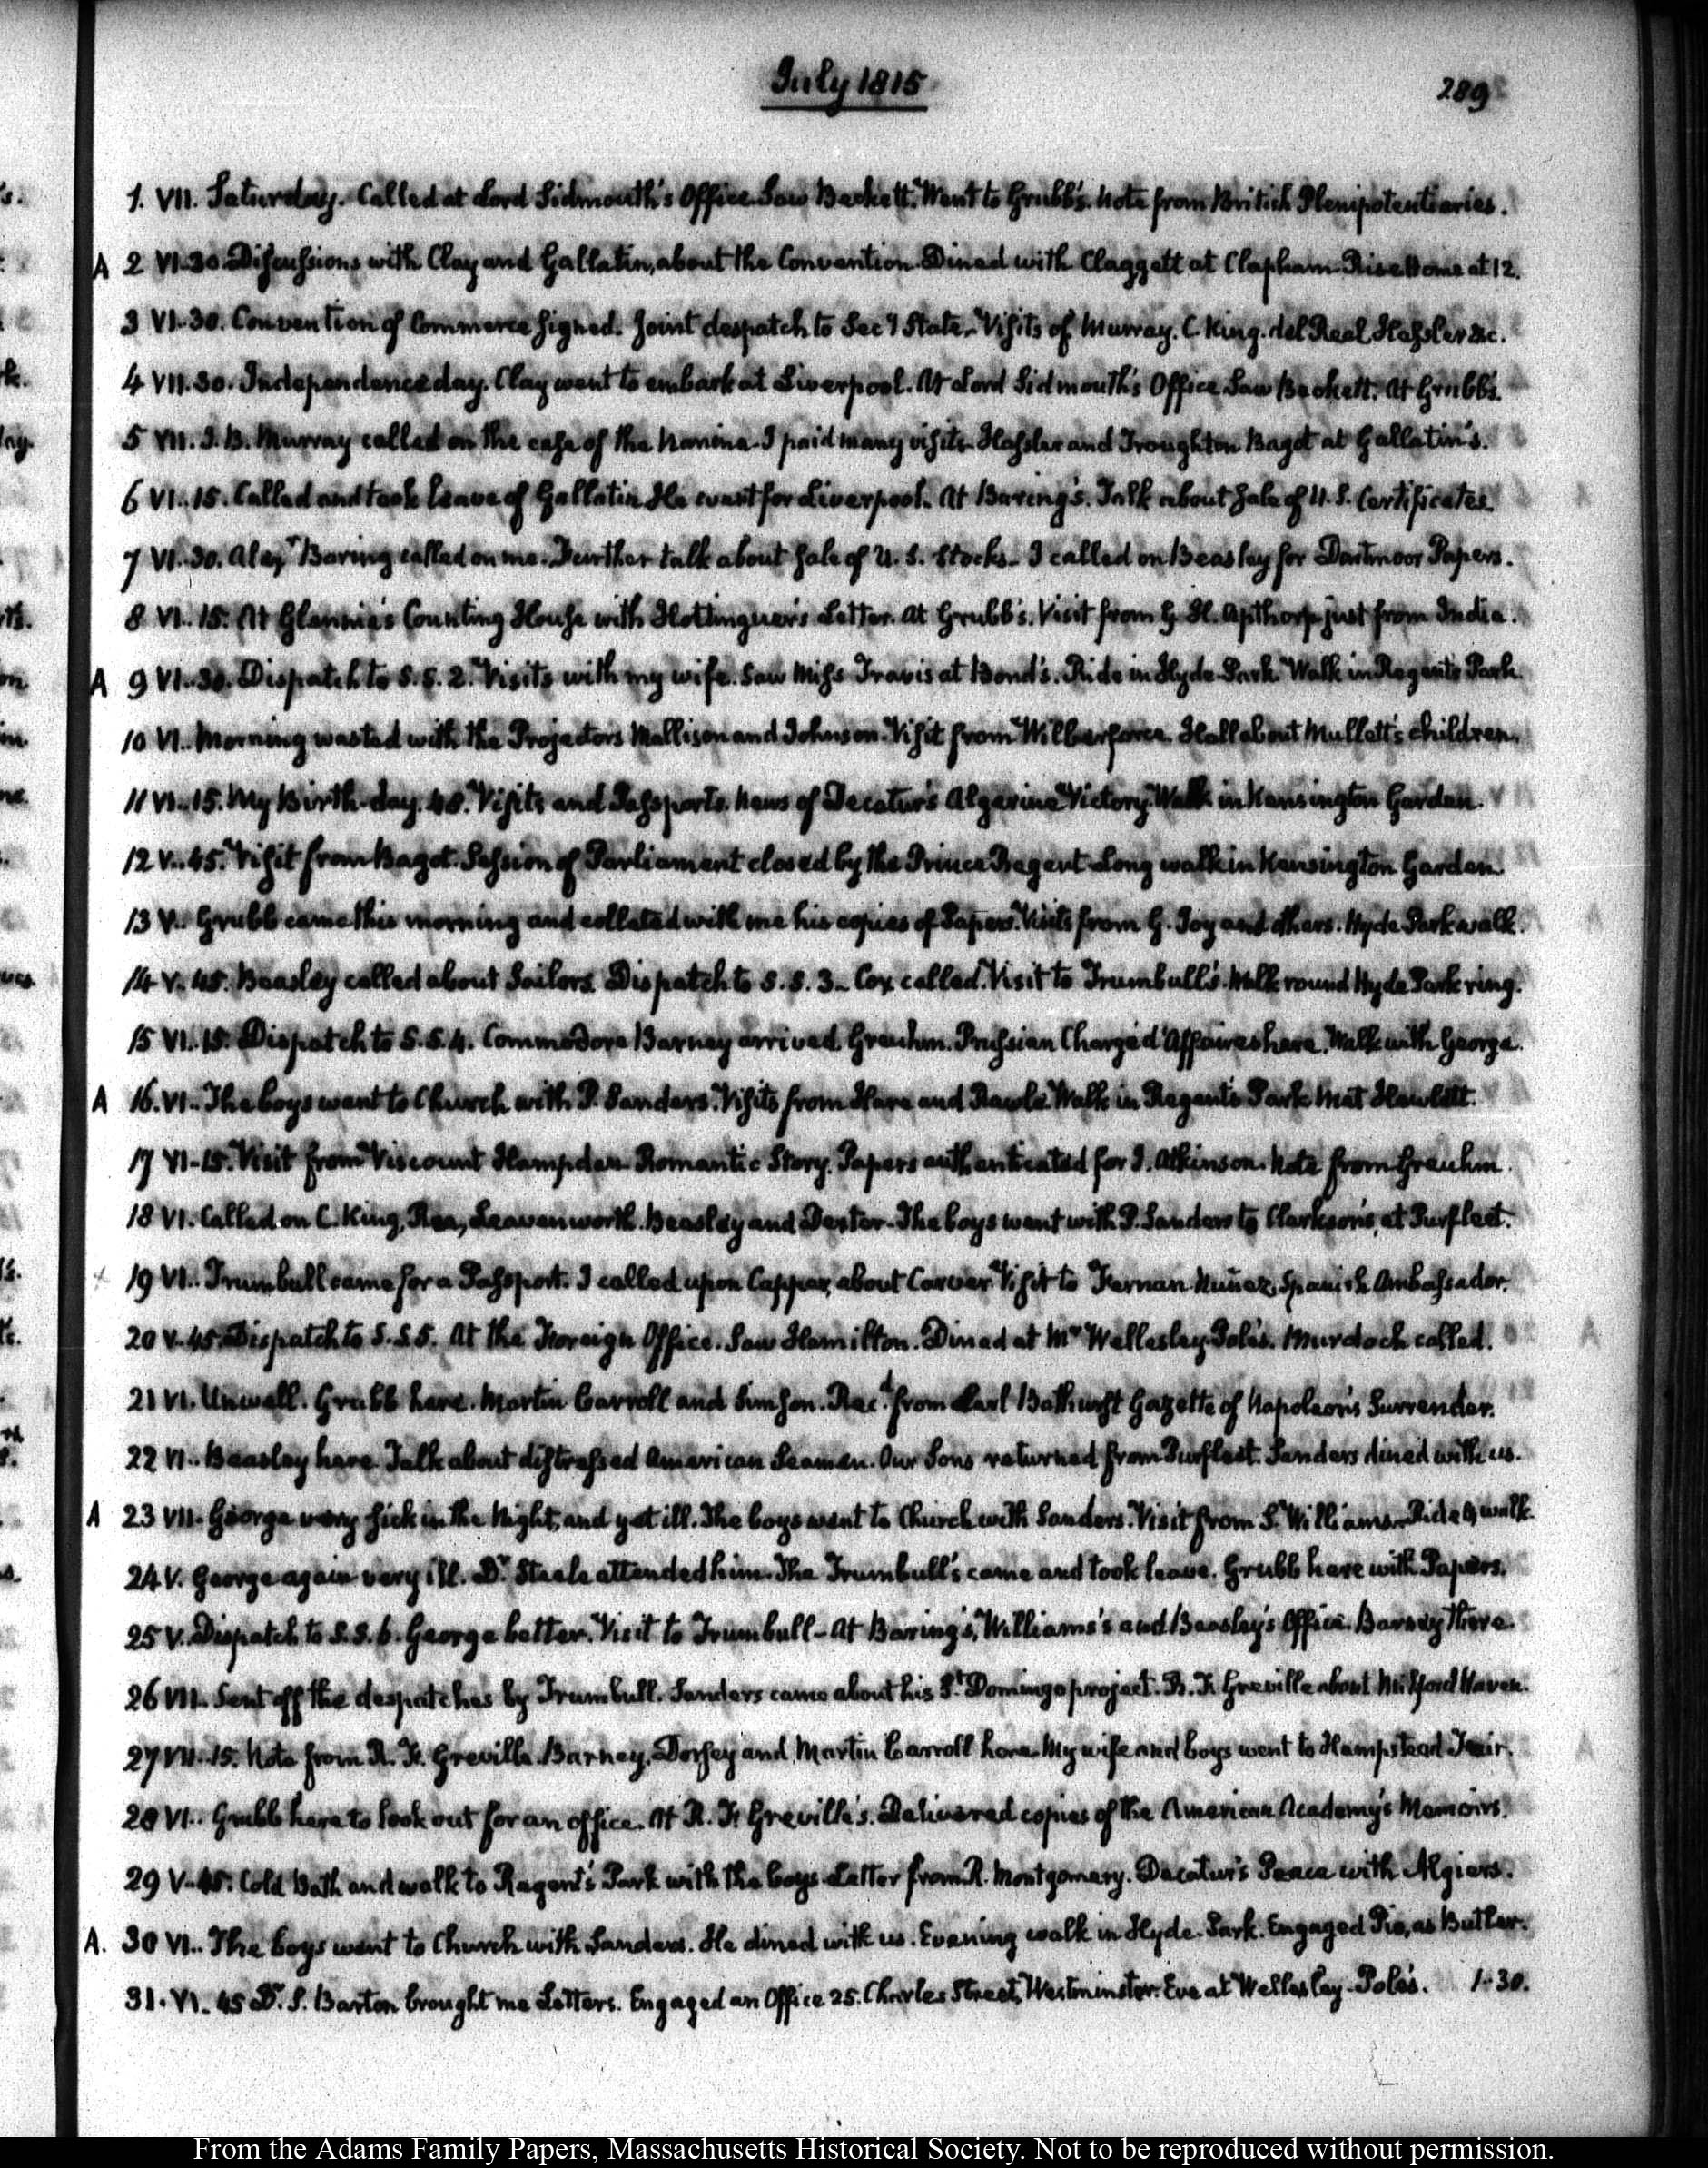 July 1815
289
1. VII. Saturday. Called at Lord Sidmouth's Office. Saw Beckett. Went to Grubb's. Note from British Plenipotentiaries.
A 2 VI.30. Discussions with Clay and Gallatin, about the Convention. Dined with Claggett at Clapham-Rise Home at 12.
3 VI.30. Convention of Commerce signed. Joint despatch to Secy State. Visits of Murray. C. King. del Real Hassler &c.
4 VII.30. Independence day. Clay went to embark at Liverpool. At Lord Sidmouth's Office Saw Beckett. At Grubb's.
5 VII. J. B. Murray called on the case of the Nanina. I paid many visits. Hassler and Troughton Bagot at Gallatin's.
6 VI..15. Called and took leave of Gallatin. He went for Liverpool. At Baring's. Talk about Sale of U.S. Certificates.
7 VI..30. Alexr Baring called on me. Further talk about Sale of U. S. Stocks. I called on Beasley for Dartmoor Papers.
8 VI..15. At Glennie's Counting House with Hottinguer's Letter. At Grubb's. Visit from G. H. Apthorp just from India.
A 9 VI..30. Dispatch to S.S. 2. Visits with my wife. Saw Miss Travis at Bond's. Ride in Hyde-Park. Walk in Regents Park.
10 VI.. Morning wasted with the Projectors Mallison and Johnson. Visit from Wilberforce. Hall about Mullett's children.
11 VI..15. My Birth-day. 48. Visits and Passports. News of Decatur's Algerine Victory. Walk in Kensington Garden.
12 V..45. Visit from Bagot. Session of Parliament closed by the Prince Regent. Long walk in Kensington Garden.
13 V.. Grubb came this morning and collated with me his copies of Papers. Visits from G. Joy and others. Hyde Park walk.
14 V. 45. Beasley called about Sailors. Dispatch to S. S. 3. Cox called. Visit to Trumbull's. Walk round Hyde Park ring.
15 VI..15. Dispatch to S.S.4. Commodore Barney arrived. Greuhm. Prussian Chargé d'Affaires here. Walk with George.
A 16. VI.. The boys went to Church with P. Sanders. Visits from Hare and Rawle. Walk in Regents Park Met Hewlett.
17 VI-15. Visit from Viscount Hampden. Romantic Story. Papers authenticated for J. Atkinson. Note from Greuhm.
18 VI. Called on C. King, Rea, Leavenworth. Beasley and Dexter. The boys went with P. Sanders to Clarkson's, at Purfleet.
19 VI.. Trumbull came for a Passport. I called upon Capper, about Carver. Visit to Fernan-Nuñez, Spanish Ambassador.
20 V-45 Dispatch to S.S 5. At the Foreign Office. Saw Hamilton. Dined at Mr Wellesley-Pole's. Murdoch called.
21 VI. Unwell. Grubb here. Martin Carroll and Simson. Recd. from Earl Bathurst Gazette of Napoleon's Surrender.
22 VI.. Beasley here. Talk about distressed American Seamen. Our Sons returned from Purfleet. Sanders dined with us.
A 23 VII. George very sick in the Night, and yet ill. The boys went to Church with Sanders. Visit from S. Williams. Ride & walk.
24 V. George again very ill. Dr. Steele attended him. The Trumbull's came and took leave. Grubb here with Papers.
25 V. Dispatch to S.S.6. George better. Visit to Trumbull- At Baring's, Williams's and Beasley's Office. Barney there.
26 VII.. Sent off the despatches by Trumbull. Sanders came about his St. Domingo project. R. F. Greville about Milford Haven.
27 VII..15. Note from R. F. Greville. Barney. Dorsey and Martin Carroll here. My wife and boys went to Hampstead Fair.
28 VI.. Grubb here to look out for an office. At R. F. Greville's. Delivered copies of the American Academy's Memoirs.
29 V-45. Cold Bath and walk to Regent's Park with the boys. Letter from R. Montgomery. Decatur's Peace with Algiers.
A. 30 VI.. The boys went to Church with Sanders. He dined with us. Evening walk in Hyde-Park. Engaged Pio, as Butler.
31. VI. 45 Dr. S. Barton brought me Letters. Engaged an Office 25. Charles Street, Westminster. Eve at Wellesley-Pole's. 1-30.
From the Adams Family Papers, Massachusetts Historical Society. Not to be reproduced without permission.